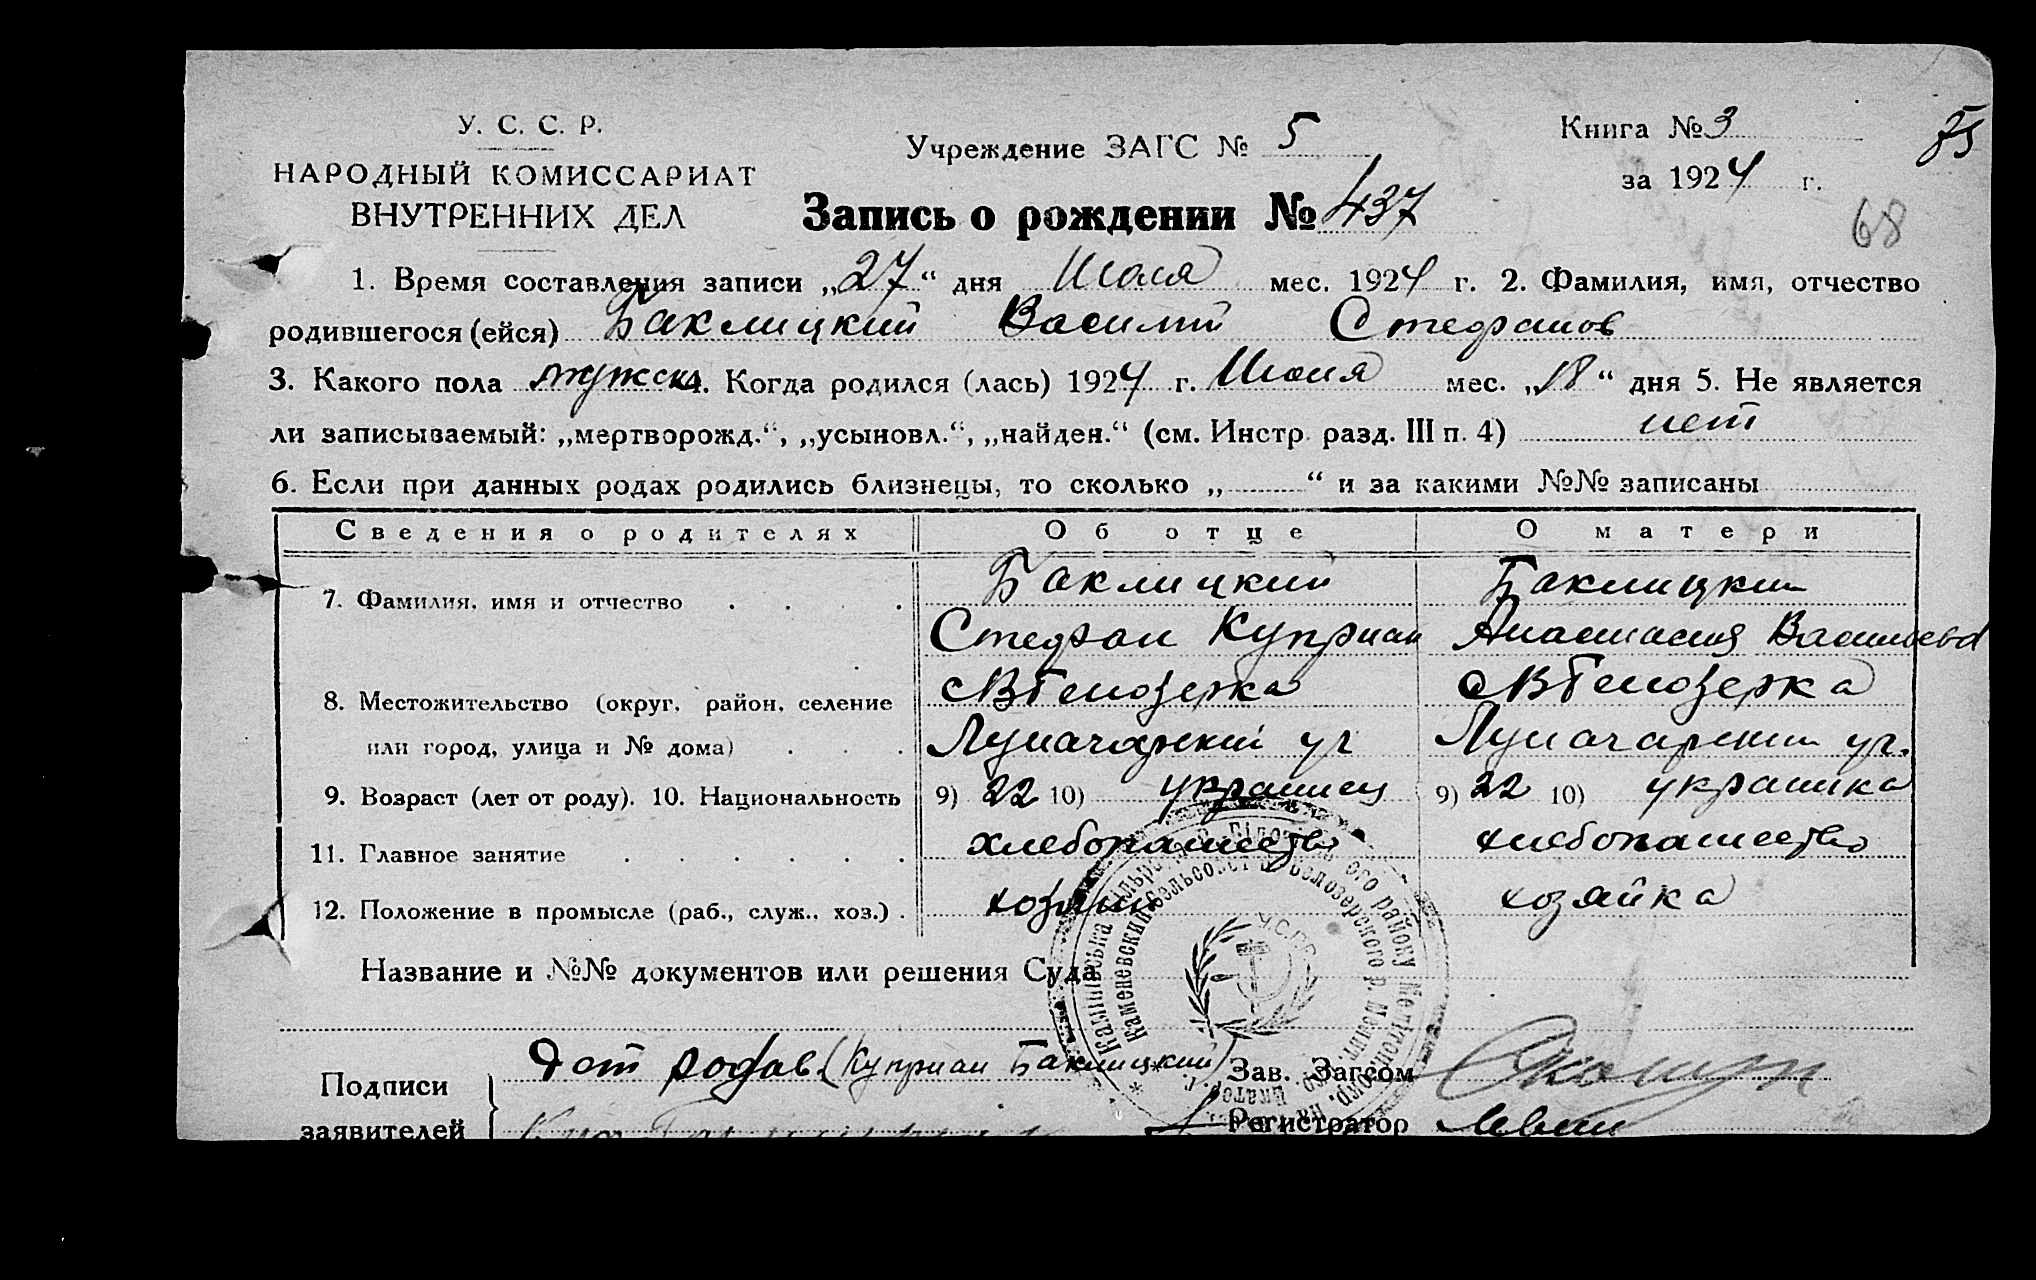 У. С. С. Р.
НАРОДНЫЙ КОМИССАРИАТ
ВНУТРЕННИХ ДЕЛ
Учреждение ЗАГС № 5
Книга № 3
за 1924 г.
68
Запись о рождении № 437
1. Время составления записи „27“ дня Июля мес. 1924 г. 2. Фамилия, имя, отчество
родившегося (ейся) Баклицкий Василий Стефанов
3. Какого пола мужск 4. Когда родился (лась) 1924 г. Июля мес. „18“ дня 5. Не является
ли записываемый: „мертворожд.“, „усыновл.“, „найден.“ (см. Инстр. разд. III п. 4) нет
6. Если при данных родах родились близнецы, то сколько „ “ и за какими №№ записаны
Сведения о родителях Об отце О матери
7. Фамилия, имя и отчество Баклицкий Баклицкий
Стефан Куприан Анастасия Васильевна
8. Местожительство (округ, район, селение СВБелозерка СВБелозерка
или город, улица и № дома) Луначарский ул Луначарский ул.
9. Возраст (лет от роду). 10. Национальность 9) 22 10) украинец 9) 22 10) украинка
11. Главное занятие хлебопашество хлебопашество
12. Положение в промысле (раб., служ., хоз.) хозяин хозяйка
Название и №№ документов или решения Суда
Подписи (Куприан Баклицкий) Зав. Загсом
заявителей Регистратор